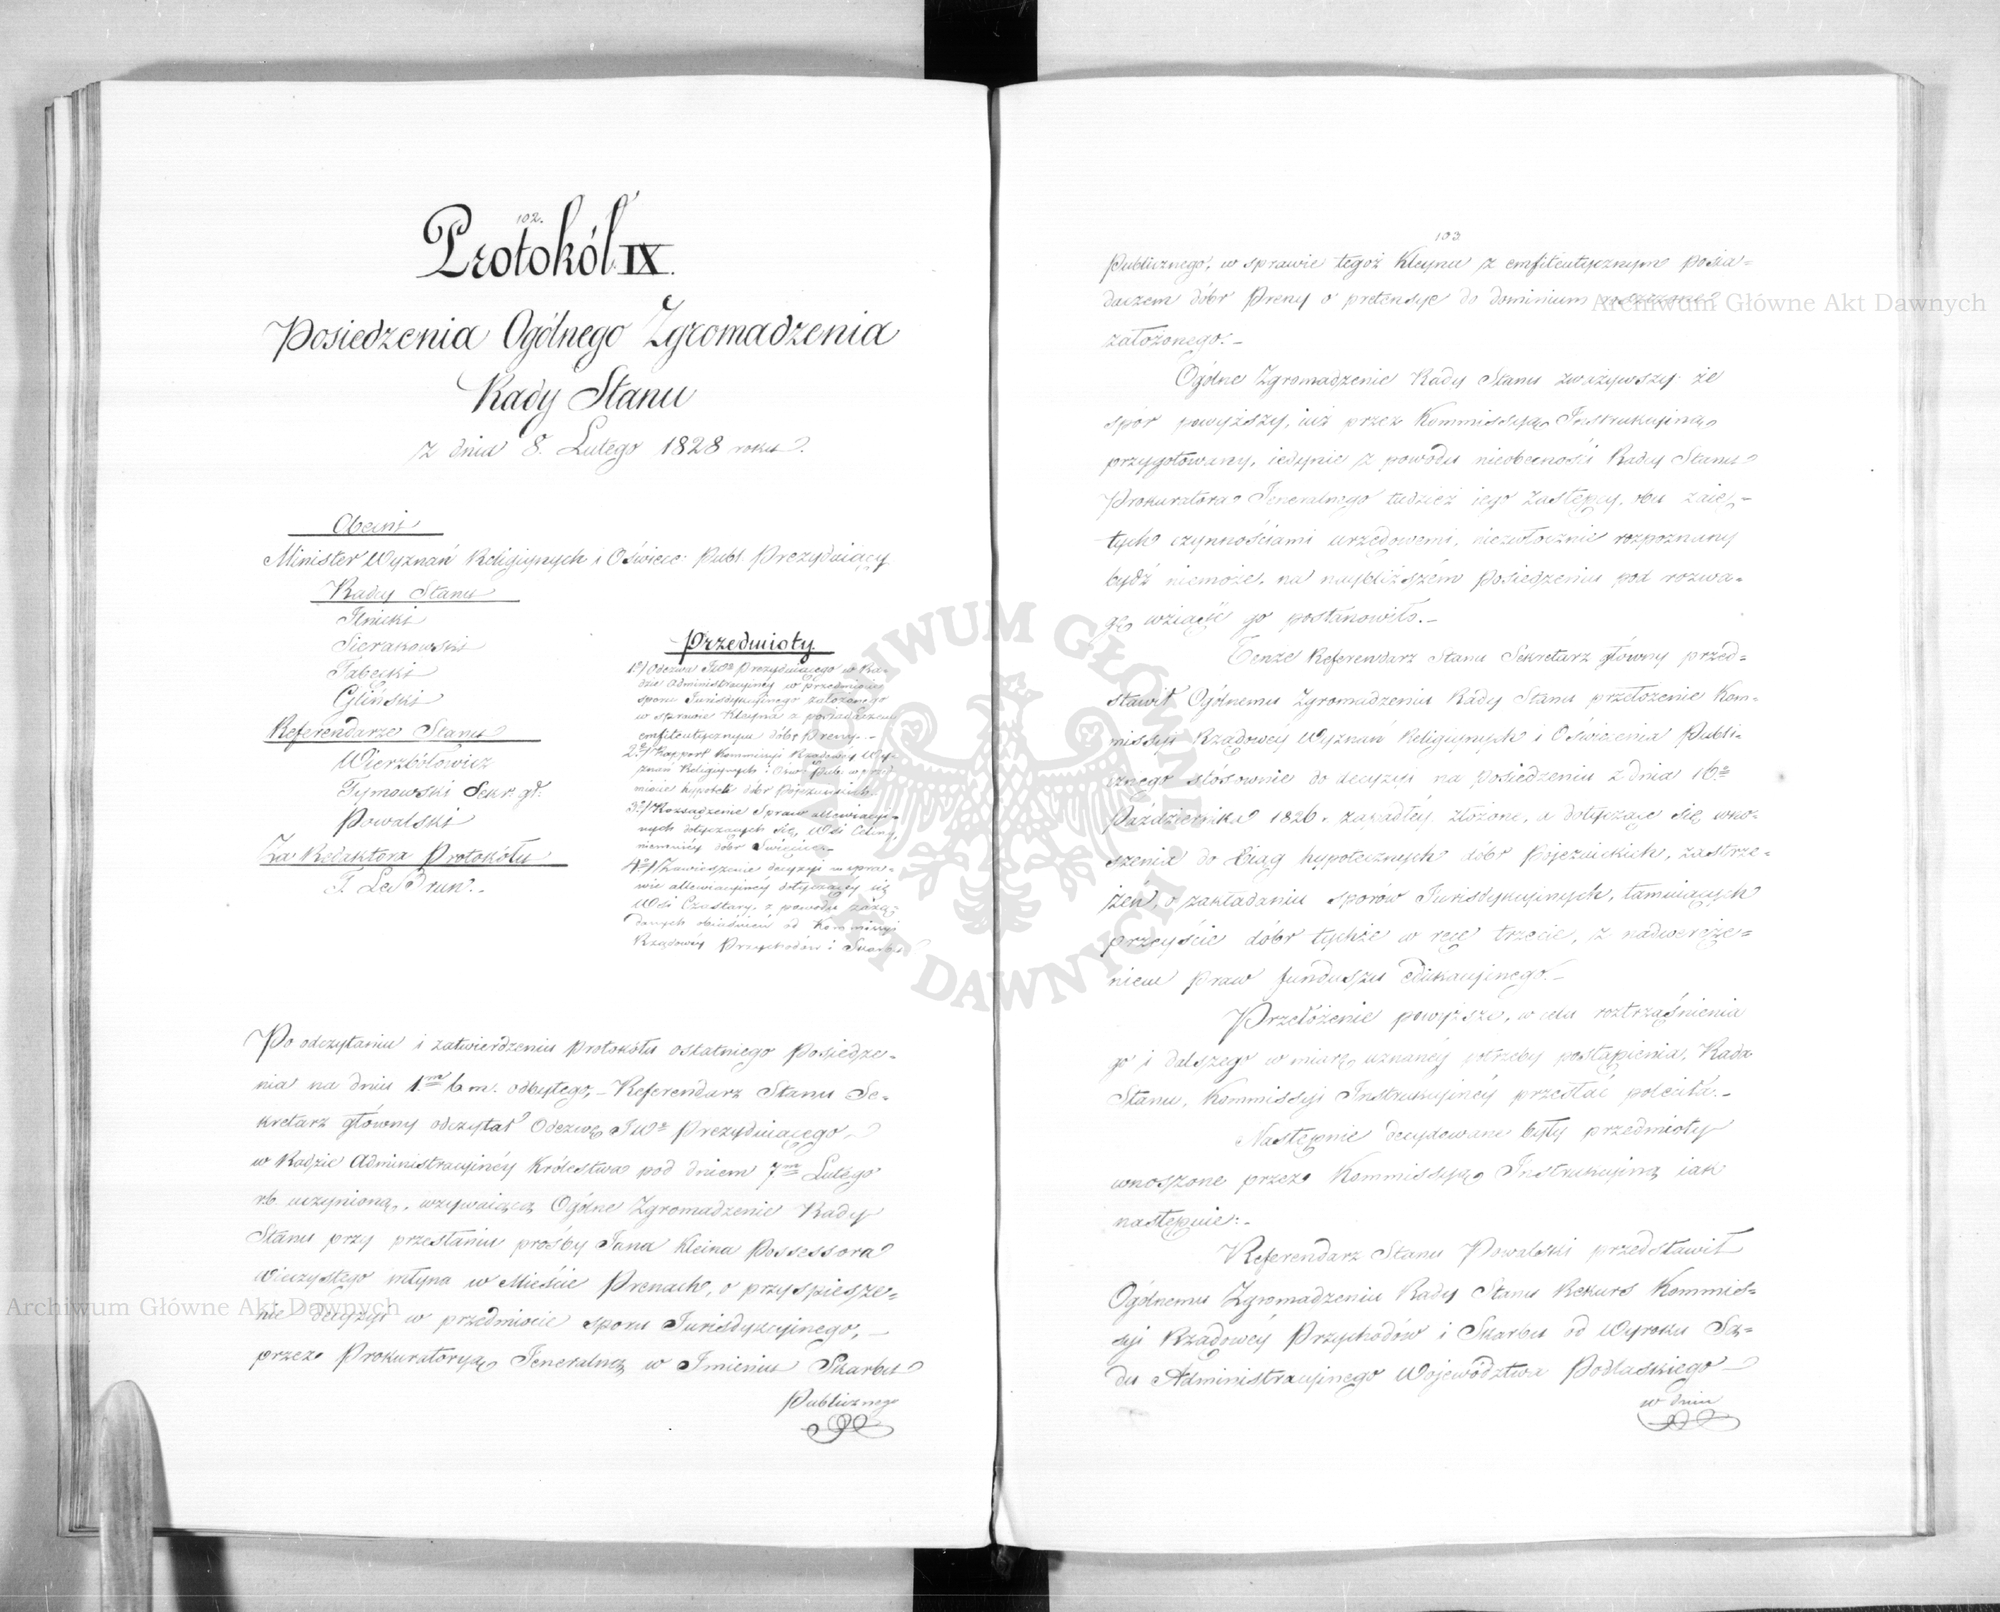 102.
Protokół IX.
Posiedzenia Ogólnego Zgromadzenia
Rady Stanu
z dnia 8. Lutego 1828 roku.
Obecni
Minister Wyznań Religijnych i Oświece: Publ. Prezyduiący
Radcy Stanu
Ilnicki
Sierakowski
Tabęcki
Gliński
Referendarze Stanu
Wierzbołowicz
Tymowski Sekr. gł.
Powalski
Za Redaktora Protokółu
F. Le Brun.
Przedmioty.
1o) Odezwa JWo Prezyduiącego w Ra-
dzie Administracyinéy w przedmiocie
sporu Jurisdykcyinego założonego
w sprawie Kleyna z posiadaczem
emfiteutycznym dóbr Preny.-
2o) Rapport Kommissyi Rządowéy Wy-
znań Religijnych i Ośw: Pub: w przed-
miocie hypotek dóbr Pojezuickich.
3o) Rozsądzenie Spraw allewiacyi-
nych dotyczących się, Wsi Celiny,
niemniéy dóbr
4o) Zawieszenie decyzyi w spra-
wie allewiacyinéy dotyczącéy się
Wsi Czostary, z powodu żąda-
danych obiaśnień od Kommissyi
Rządowéy Przychodów i Skarbu
Po odczytaniu i zatwierdzeniu Protokółu ostatniego Posiedze-
nia na dniu 1m b m. odbytego, - Referendarz Stanu Se-
kretarz główny odczytał Odezwę JWo Prezyduiącego
w Radzie Administracyinéy Królestwa pod dniem 7m Lutego
r.b. uczynioną, wzywaiącą Ogólne Zgromadzenie Rady
Stanu przy przesłaniu prośby Jana Kleina Possessora
wieczystego młyna w Mieście Prenach, o przyspiesze-
nie decyzyi w przedmiocie sporu Jurisdykcyinego, -
przez Prokuratoryą Jeneralną w Imieniu Skarbu
Publicznego
103
Publicznego, w sprawie tegoż Kleyna z emfiteutycznym posia-
daczem dóbr Preny o pretensye do dominium
założonego.-
Ogólne Zgromadzenie Rady Stanu zważywszy że
spór powyższy, iuż przez Kommissyą Instrukcyiną
przygotowany, iedynie z powodu nieobecności Radcy Stanu
Prokuratora Jeneralnego tudzież iego Zastępcy, obu zaię-
tych czynnościami urzędowemi, niezwłocznie rozpoznany
bydź niemoże, na naybliższém Posiedzeniu pod rozwa-
gę wziąść go postanowiło.-
Tenże Referendarz Stanu Sekretarz główny przed-
stawił Ogólnemu Zgromadzeniu Rady Stanu przełożenie Kom-
missyi Rządowéy Wyznań Religijnych i Oświecenia Publi-
cznego stósownie do decyzyi na Posiedzeniu z dnia 16o
Października 1826 r. zapadłéy złożone, a dotyczące się wno-
szenia do Xiąg hypotecznych dóbr Pojezuickich, zastrze-
żeń, o zakładaniu sporów Jurisdykcyinych, tamuiących
przeyście dóbr tychże w ręce trzecie, z nadweręże-
niem Praw funduszu edukacyinego.-
Przełożenie powyższe, w celu roztrząśnienia
go i dalszego w miarę uznanéy potrzeby postąpienia, Rada
Stanu, Kommissyi Instrukcyinéy przesłać poleciła.-
Następnie decydowane były przedmioty
wnoszone przez Kommissyą Instrukcyiną iak
następuie:-
Referendarz Stanu Powalski przedstawił
Ogólnemu Zgromadzeniu Rady Stanu Rekurs Kommis-
syi Rządowéy Przychodów i Skarbu od Wyroku Są-
du Administracyinego Województwa Podlaskiego
w dniu
Archiwum Główne Akt Dawnych
Archiwum Główne Akt Dawnych
ARCHIWUM GŁÓWNE AKT DAWNYCH